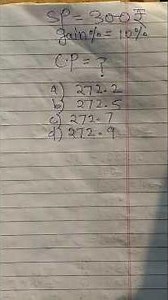 SP = 300₹
gain% = 10%
C.P = ?
a) 272.2
b) 272.5
c) 272.7
d) 272.9